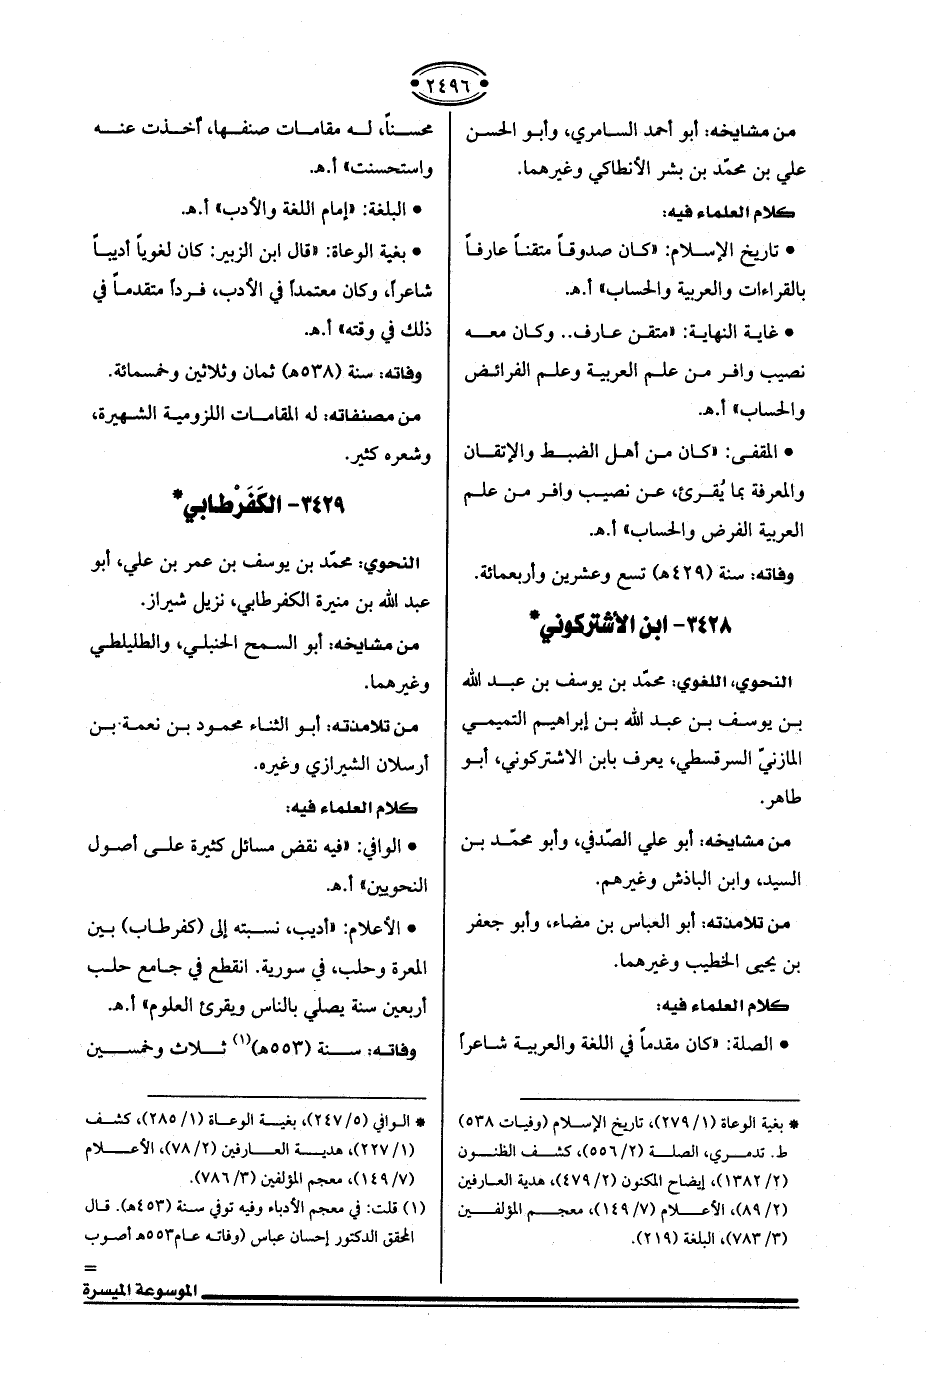 ٢٤٩٦
من مشايخه: أبو أحمد السامري، وأبو الحسن
علي بن محمّد بن بشر الأنطاكي وغيرهما.
كلام العلماء فيه:
• تاريخ الإسلام: «كان صدوقاً متقناً عارفاً
بالقراءات والعربية والحساب» أ.هـ.
• غاية النهاية: «متقن عارف.. وكان معه
نصيب وافر من علم العربية وعلم الفرائض
والحساب» أ.هـ.
• المقفى: «كان من أهل الضبط والإتقان
والمعرفة بما يُقرئ، عن نصيب وافر من علم
العربية الفرض والحساب» أ.هـ.
وفاته: سنة (٤٢٩هـ) تسع وعشرين وأربعمائة.
٣٤٢٨- ابن الأشتركوني*
النحوي، اللغوي: محمّد بن يوسف بن عبد الله
بن يوسف بن عبد الله بن إبراهيم التميمي
المازنيّ السرقسطي، يعرف بابن الاشتركوني، أبو
طاهر.
من مشايخه: أبو علي الصّدفي، وأبو محمّد بن
السيد، وابن الباذش وغيرهم.
من تلامذته: أبو العباس بن مضاء، وأبو جعفر
بن يحيى الخطيب وغيرهما.
كلام العلماء فيه:
• الصلة: «كان مقدماً في اللغة والعربية شاعراً
* بغية الوعاة (١/ ٢٧٩)، تاريخ الإسلام (وفيات ٥٣٨)
ط. تدمري، الصلة (٢/ ٥٥٦)، كشف الظنون
(٢/ ١٣٨٢)، إيضاح المكنون (٢/ ٤٧٩)، هدية العارفين
(٢/ ٨٩)، الأعلام (٧/ ١٤٩)، معجم المؤلفين
(٣/ ٧٨٣)، البلغة (٢١٩).
محسناً، له مقامات صنفها، أخذت عنه
واستحسنت» أ.هـ.
• البلغة: «إمام اللغة والأدب» أ.هـ.
• بغية الوعاة: «قال ابن الزبير: كان لغوياً أديباً
شاعراً، وكان معتمداً في الأدب، فرداً متقدماً في
ذلك في وقته» أ.هـ.
وفاته: سنة (٥٣٨هـ) ثمان وثلاثين وخمسمائة.
من مصنفاته: له المقامات اللزومية الشهيرة،
وشعره كثير.
٣٤٢٩- الكَفَرْطابي*
النحوي: محمّد بن يوسف بن عمر بن علي، أبو
عبد الله بن منيرة الكفرطابي، نزيل شيراز.
من مشايخه: أبو السمح الحنبلي، والطليطلي
وغيرهما.
من تلامذته: أبو الثناء محمود بن نعمة بن
أرسلان الشيرازي وغيره.
كلام العلماء فيه:
• الوافي: «فيه نقض مسائل كثيرة على أصول
النحويين» أ.هـ.
• الأعلام: «أديب، نسبته إلى (كفرطاب) بين
المعرة وحلب، في سورية. انقطع في جامع حلب
أربعين سنة يصلي بالناس ويقرئ العلوم» أ.هـ.
وفاته: سنة (٥٥٣هـ)(١) ثلاث وخمسين
* الوافي (٥/ ٢٤٧)، بغية الوعاة (١/ ٢٨٥)، كشف
(١/ ٢٢٧)، هدية العارفين (٢/ ٧٨)، الأعلام
(٧/ ١٤٩)، معجم المؤلفين (٣/ ٧٨٦).
(١) قلت: في معجم الأدباء وفيه توفي سنة (٤٥٣هـ). قال
المحقق الدكتور إحسان عباس (وفاته عام ٥٥٣هـ أصوب
=
الموسوعة الميسرة